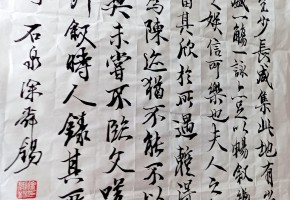 至少長咸集此地有
盛一觴一詠亦足以暢敘幽
之娛信可樂也夫人之
其欣於所遇
為陳迹猶不能不以
契未嘗不臨文嗟
列敘時人錄其所
石泉徐舜錫